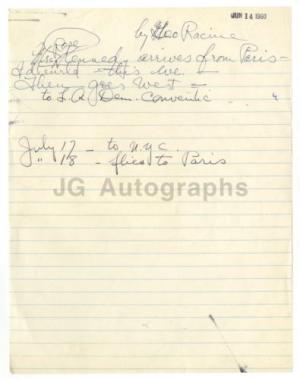 JUN 14 1960
by Geo Racine
Rose
Kennedy arrives from Paris-
Idlewild - this eve. -
then goes West -
to L.A. Dem. Conventic
July 17 - to N.Y.C.
" 18 - flies to Paris
JG Autographs